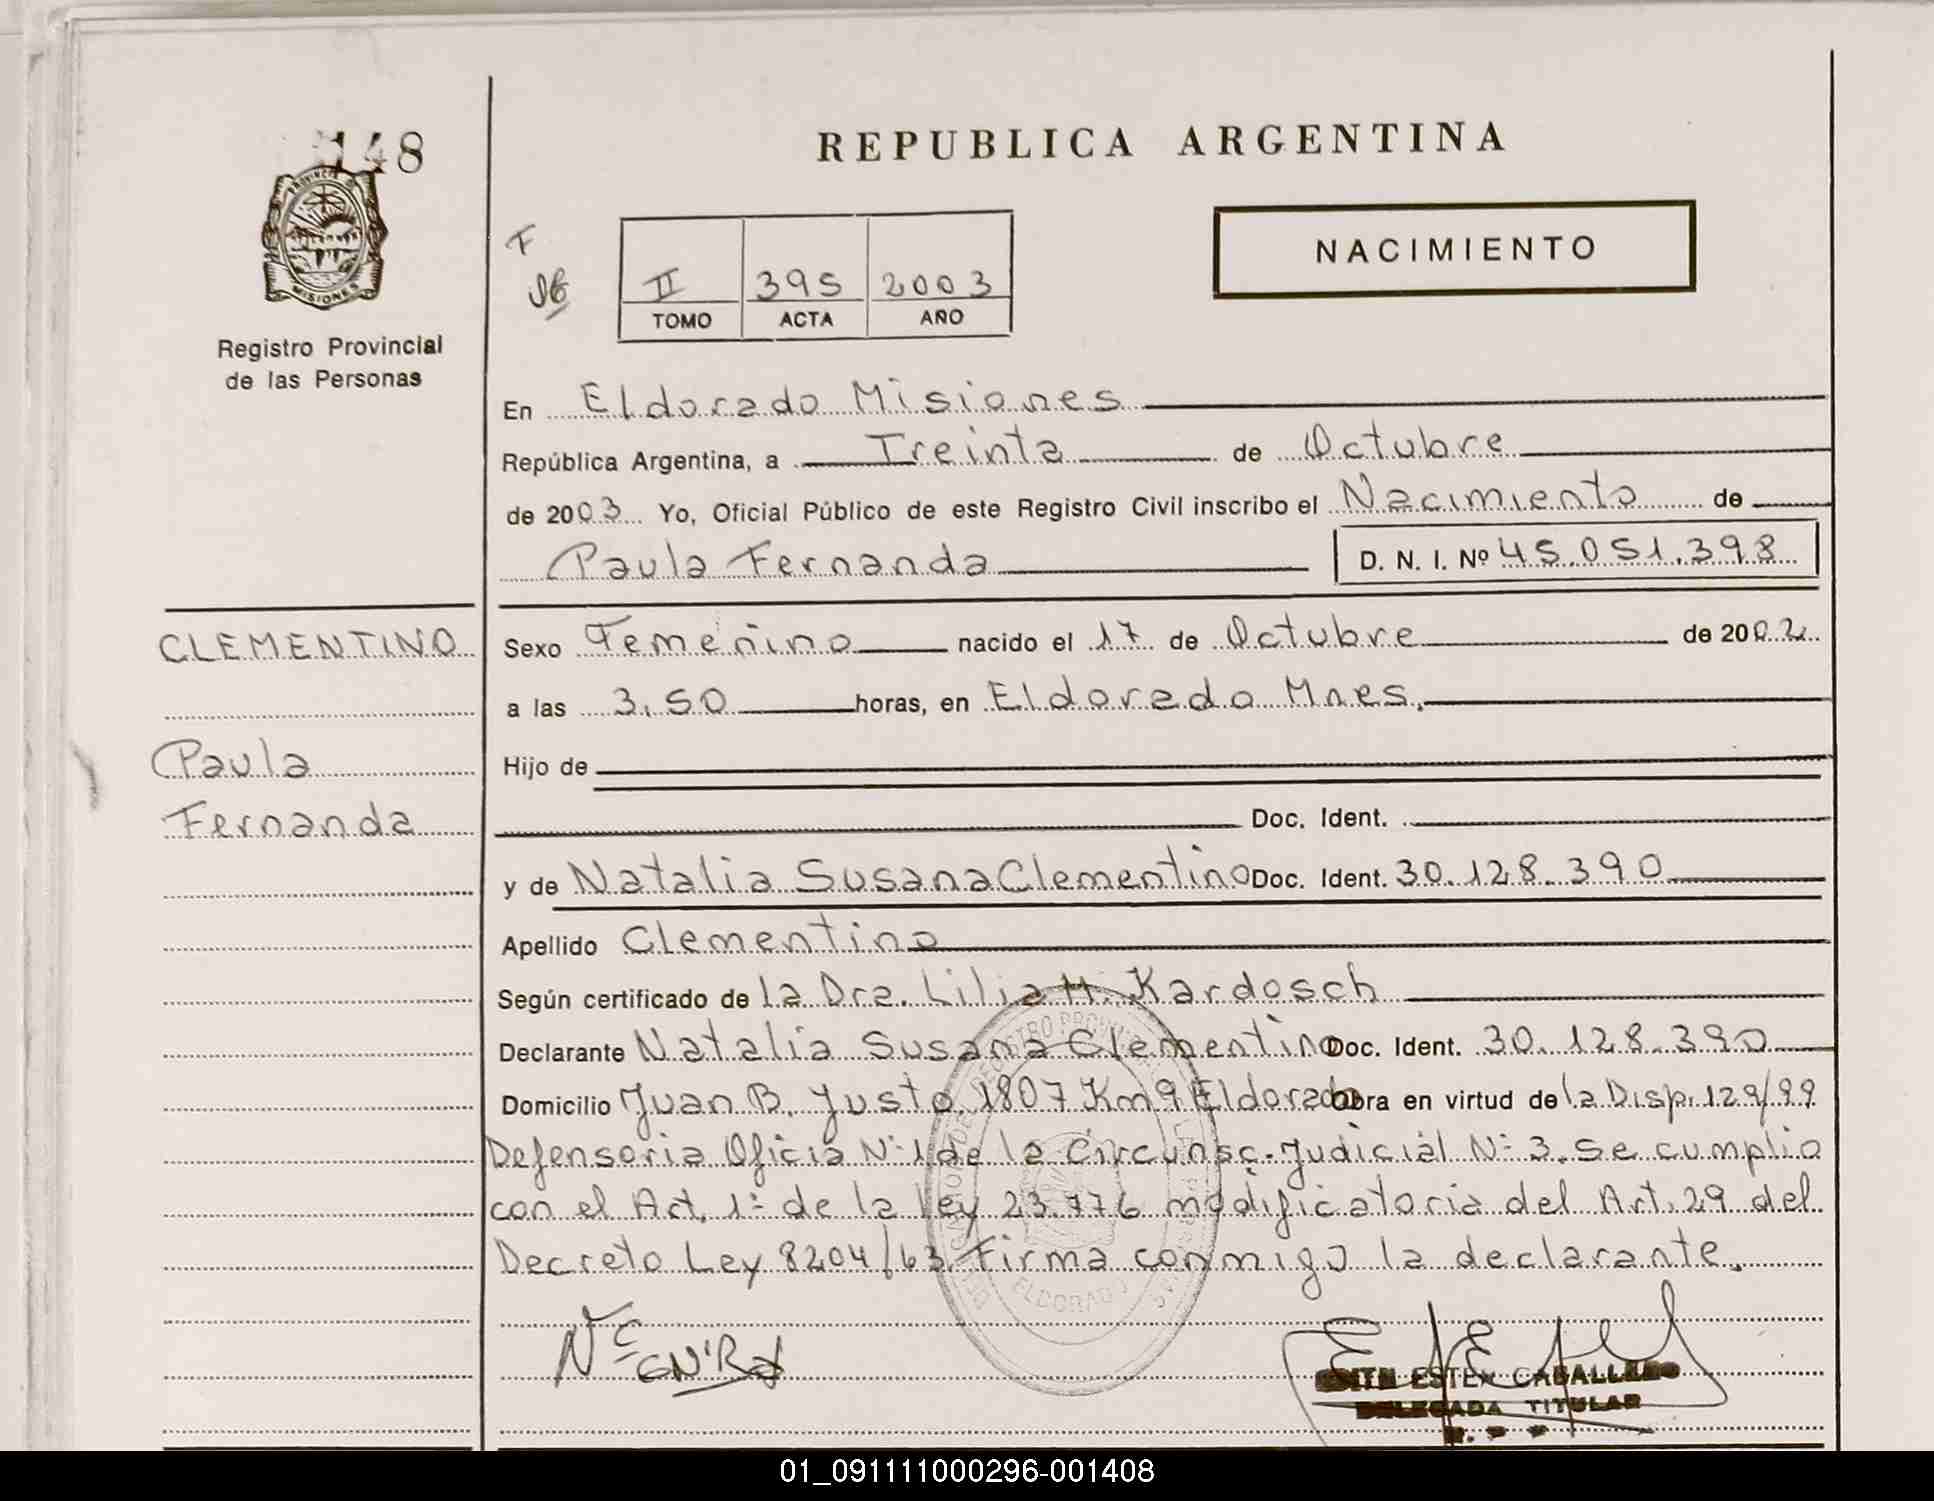 148
REPUBLICA ARGENTINA
PROVINCIA
MISIONES
Registro Provincial
de las Personas
F
II 395 2003
TOMO ACTA AÑO
NACIMIENTO
En Eldorado Misiones
República Argentina, a Treinta de Octubre
de 2003 Yo, Oficial Público de este Registro Civil inscribo el Nacimiento de
Paula Fernanda D. N. I. Nº 45.051.398
CLEMENTINO
Paula
Fernanda
Sexo Femenino nacido el 17 de Octubre de 2002
a las 3,50 horas, en Eldorado Mnes.
Hijo de
Doc. Ident.
y de Natalia Susana Clementino Doc. Ident. 30.128.390
Apellido Clementino
Según certificado de la Dra. Lilia H. Kardosch
Declarante Natalia Susana Clementino Doc. Ident. 30.128.390
Domicilio Juan B. Justo 1807 Km 9 Eldorado Obra en virtud de la Disp. 129/99
Defensoria Oficia Nº 1 de la Circunsc. Judicial Nº 3. Se cumplio
con el Art. 1º de la Ley 23.776 modificatoria del Art. 29 del
Decreto Ley 8204/63 Firma conmigo la declarante.
ELDORADO
EDITH ESTER CABALLERO
DELEGADA TITULAR
01_091111000296-001408